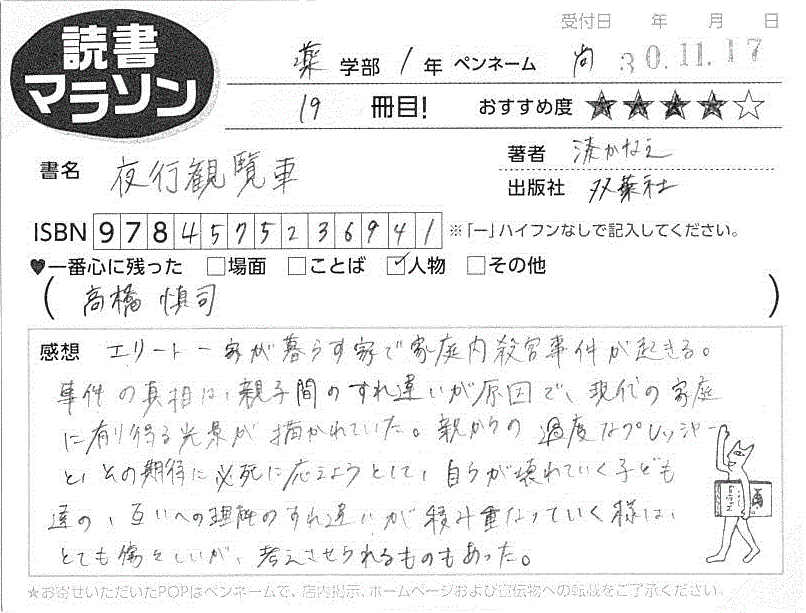 読書
マラソン
受付日 年 月 日
薬 学部 1 年 ペンネーム 尚 30.11.17
19 冊目! おすすめ度 ★★★★☆
書名 夜行観覧車
著者 湊かなえ
出版社 双葉社
ISBN 9784575236941 ※「ー」ハイフンなしで記入してください。
♥一番心に残った □場面 □ことば ☑人物 □その他
(高橋 慎司)
感想 エリート一家が暮らす家で家庭内殺害事件が起きる。
事件の真相は、親子間のすれ違いが原因で、現代の家庭
に有り得る光景が描かれていた。親からの過度なプレッシャー
と、その期待に必死に応えようとして、自らが壊れていく子ども
達の、互いへの理解のすれ違いが積み重なっていく様は、
とても傷々しいが、考えさせられるものもあった。
★お寄せいただいたPOPはペンネームで、店内掲示、ホームページおよび宣伝物への転載をご了承ください。